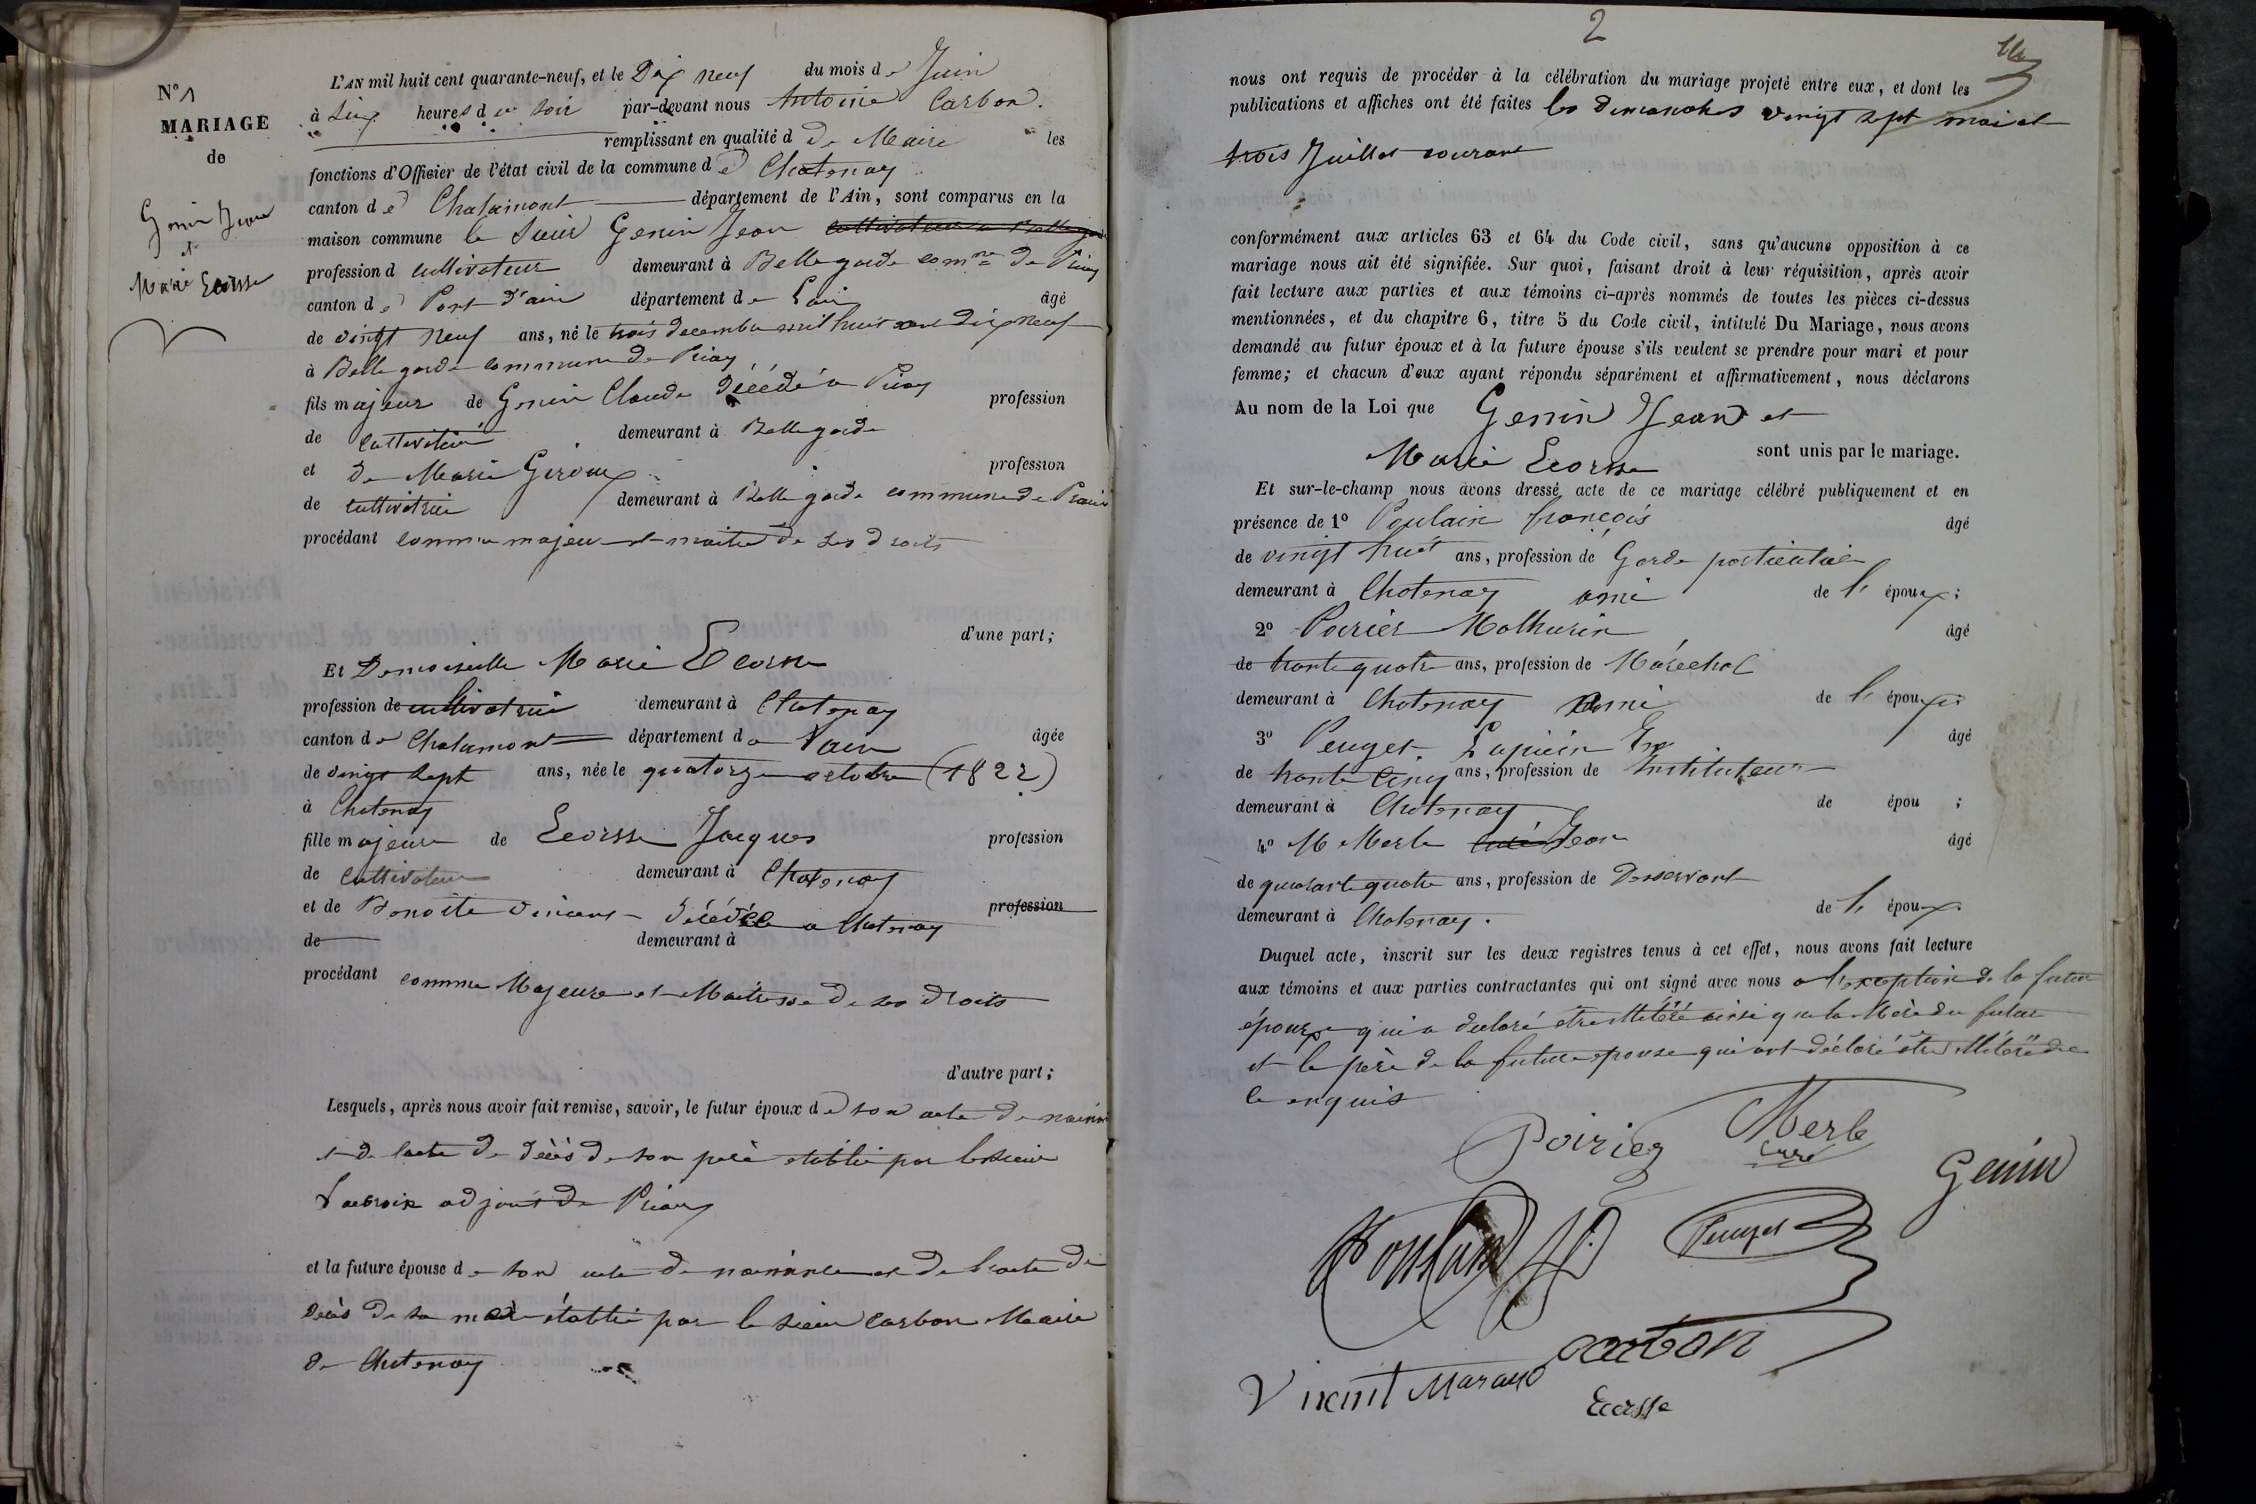 N° 1
MARIAGE
de
Genin Jean
et
Marie Ecorsse
L'AN mil huit cent quarante-neuf, et le Dix neuf du mois de Juin
à Six heures du soir par-devant nous Antoine Carbon.
remplissant en qualité d de Maire les
fonctions d'Officier de l'état civil de la commune de Chatenay
canton de Chalamont département de l'Ain, sont comparus en la
maison commune le Sieur Genin Jean cultivateur a Bellegarde
profession d cultivateur demeurant à Belle garde comne de Priay
canton de Pont d'ain département de Lain âgé
de vingt neuf ans, né le trois decembre mil huit cent dix neuf
à Belle garde commune de Priay
fils majeur de Genin Claude Décédé a Priay profession
de cultivateur demeurant à Belle garde
et de Marie Giroux profession
de cultivatrice demeurant à Belle garde commune de Priay
procédant comme majeur et maitre de ses droits
d'une part;
Et Demoiselle Marie Ecorsse
profession de cultivatrice demeurant à Chatenay
canton de Chalamont département de Lain âgée
de vingt sept ans, née le quatorze octobre (1822)
à Chatenay
fille majeure de Ecorsse Jacques profession
de cultivateur demeurant à Chatenay
et de Benoite Vincent Décédée a Chatenay profession
de demeurant à
procédant comme Majeure et Maitresse de ses droits
d'autre part;
Lesquels, après nous avoir fait remise, savoir, le futur époux de son acte de
et de lacte de décès de son père établie par le sieur
adjoint de Priay
et la future épouse de son acte de naissance et de l'acte de
décès de sa mère établie par le sieur Carbon Maire
de Chatenay
2
nous ont requis de procéder à la célébration du mariage projeté entre eux, et dont les
publications et affiches ont été faites les dimanches vingt sept mai et
trois Juillet courant
conformément aux articles 63 et 64 du Code civil, sans qu'aucune opposition à ce
mariage nous ait été signifiée. Sur quoi, faisant droit à leur réquisition, après avoir
fait lecture aux parties et aux témoins ci-après nommés de toutes les pièces ci-dessus
mentionnées, et du chapitre 6, titre 5 du Code civil, intitulé Du Mariage, nous avons
demandé au futur époux et à la future épouse s'ils veulent se prendre pour mari et pour
femme; et chacun d'eux ayant répondu séparément et affirmativement, nous déclarons
Au nom de la Loi que Genin Jean et
Marie Ecorsse sont unis par le mariage.
Et sur-le-champ nous avons dressé acte de ce mariage célébré publiquement et en
présence de 1° Poulain françois âgé
de vingt huit ans, profession de Garde particulier
demeurant à Chatenay ami de l' époux;
2° Poirier Mathurin âgé
de trante quatre ans, profession de Maréchal
demeurant à Chatenay ami de l' époux;
3° Peuget âgé
de trante cinq ans, profession de Instituteur
demeurant à Chatenay de épou ;
4° M Merle curé Jean âgé
de quarante quatre ans, profession de Desservant
demeurant à Chatenay. de l' époux
Duquel acte, inscrit sur les deux registres tenus à cet effet, nous avons fait lecture
aux témoins et aux parties contractantes qui ont signé avec nous a l'exception de la future
épouse qui a declaré etre illétéré ainsi que la Mère du futur
et le père de la future epouse qui ont déclaré être illétéré de
ce enquis
Poirier Merle
curé
Genin
Poulain
Peuget
Carbon
Vincent Maraud
Ecorsse